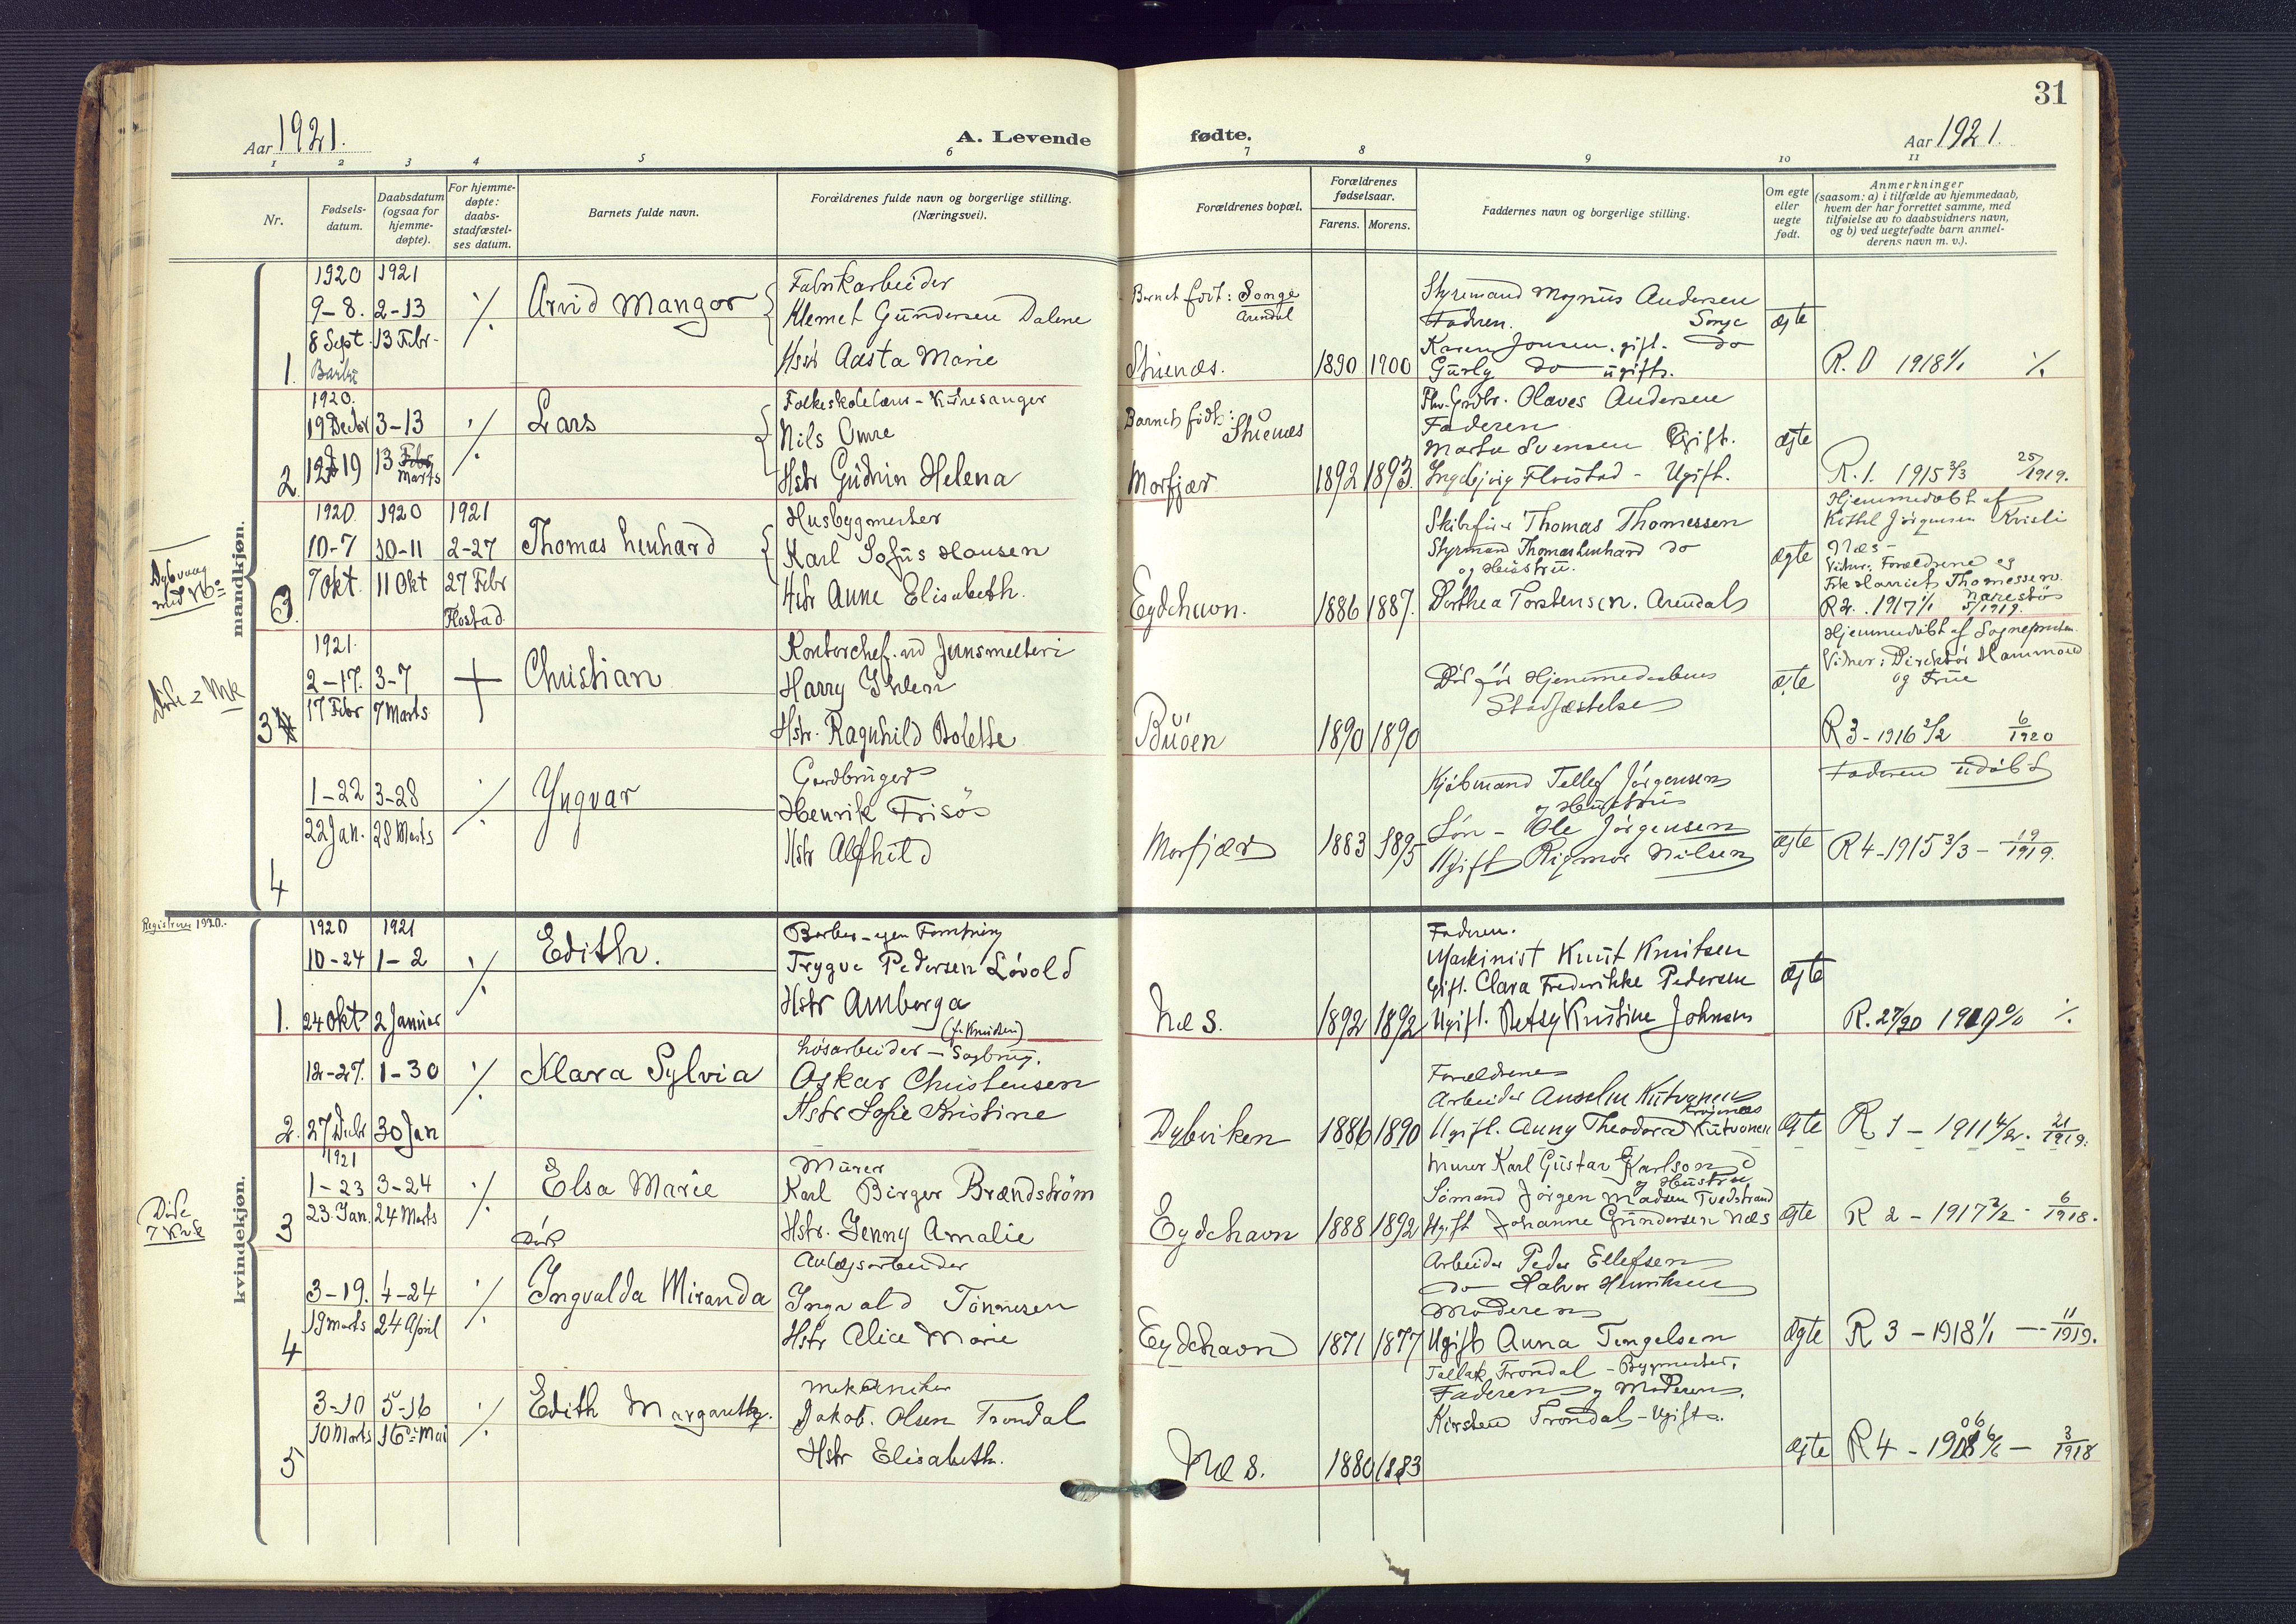 31
Aar 1921.
A. Levende
fødte.
Aar 1921.
1 2 3 4 5 6 7 8 9 10 11
Nr.
Fødsels-
datum.
Daabsdatum
(ogsaa for
hjemme-
døpte).
For hjemme-
døpte:
daabs-
stadfæstel-
ses datum.
Barnets fulde navn.
Forældrenes fulde navn og borgerlige stilling.
(Næringsvei).
Forældrenes bopæl.
Forældrenes
fødselsaar.
Farens. Morens.
Faddernes navn og borgerlige stilling.
Om egte
eller
uegte
født.
Anmerkninger
(saasom: a) i tilfælde av hjemmedaab,
hvem der har forrettet samme, med
tilføielse av to daabsvidners navn,
og b) ved uegtefødte barn anmel-
derens navn m. v.).
mandkjøn.
1.
1920
9-8.
8 Sept.
Barbu
1921
2-13
13 Febr-
Arvid Mangor
Fabrikarbeider
Klemet Gundersen Dalene
Hstr Aasta Marie
Barnet født: Songe
Arendal
1890 1900
Styrmand Magnus Andersen
Faderen. Songe
Karen Jonsen. gift. do
Gurly do ugift.
ægte
R. 0 1918 1/1 ./.
2.
1920.
3-13
13 Febr
Marts
Lars
Nils Omre
Hstr Gudrun Helena
Barnet født:
Morfjær
1892 1893.
Olaves Andersen
Faderen
Marta Svensen Ugift.
Ugift.
ægte
R. 1. 1915 3/3 25/1919.
Dybvaag
3.
1920
10-7
7 Okt.
1920
10-11
11 Okt
1921
2-27
27 Febr
Flostad
Thomas Lenhard
Husbygmester
Karl Sofus Hansen
Hstr Anne Elisabeth.
Eydehavn.
1886 1887.
Skibsfører Thomas Thomessen
Styrmand Thomas Lenhard do
og Hustru.
Dorthea Torstensen. Arendal
ægte
Hjemmedøbt af
Kittel Jørgensen
Næs-
Vidner: Forældrene og
Frk Harriet Thomessen.
Narestø
R 2. 1917 1/1 5/1919.
3 4
1921.
2-17.
17 Febr
3-7
7 Marts
Christian
Kontorchef. ved Jernsmelteri
Harry Ihlen
Hstr. Ragnhild Bolette
Buøen
1890 1890
Død før Hjemmedaabens
Stadfæstelse
ægte
Hjemmedøbt af Sognepresten.
Vidner: Direktør Hammond
og Frue
R 3 - 1916 2/2 6/1920
4
1-22
22 Jan.
3-28
28 Marts
Yngvar
Gardbruger
Henrik Frisø
Hstr Alfhild
Morfjær
1883 1895
Kjøbmand Tellef Jørgensen
og Hustru
Søn - Ole Jørgensen
Ugift Rigmor Nilsen
ægte
Faderen udøbt
R 4 - 1915 3/3 - 19/1919.
Registreres 1920.
kvindekjøn.
1.
1920
10-24
24 Okt
1921
1-2
2 Januar
Edith.
Barber - egen Forretning
Trygve Pedersen Løvold
Hstr Amberga
(f. Knudsen)
Næs.
1892 1892
Faderen.
Maskinist Knut Knutsen
Gift. Clara Frederikke Pedersen
Ugift. Betsy Kristine Johnsen
ægte
R. 27/20 1919 0/0 ./.
2.
12-27.
1-30
30 Jan
Klara Sylvia
Løsarbeider - Sagbrug.
Oskar Christensen
Hstr Sofie Kristine
Dybviken
1886 1890
Forældrene
Arbeider Anselm Kutvonen
Ugift. Anny Theodora Kutvonen
ægte
R 1 - 1911 4/2. 21/1919.
3
1921
1-23
23. Jan.
3-24
24 Marts
Elsa Marie
Død
Murer
Karl Birger Brændstrøm
Hstr. Jenny Amalie
Eydehavn
1888 1892
Murer Karl Gustav Karlson
og Hustru
Sømand Jørgen Madsen Tvedstrand
Ugift Johanne Gundersen Næs
ægte
R 2 - 1917 2/2 - 6/1918.
4
3-19.
19 Marts
4-24
24 April
Ingvalda Miranda
Anlægsarbeider
Ingvald Tønnesen
Hstr Alice Marie
Eydehavn
1871 1877
Arbeider Peder Ellefsen
do Halvor Henriksen
Moderen
Ugift Anna Tengelsen
ægte
R 3 - 1918 1/1 - 11/1919.
5
3-10
10 Marts
5-16
16de Mai
Edith Margareth.
Mekaniker
Jakob. Olsen Trondal
Hstr Elisabeth.
Næs.
1880 1883
Tallak Trondal - Bygmester.
Faderen og Moderen.
Kirsten Trondal - Ugift.
ægte
3/1918